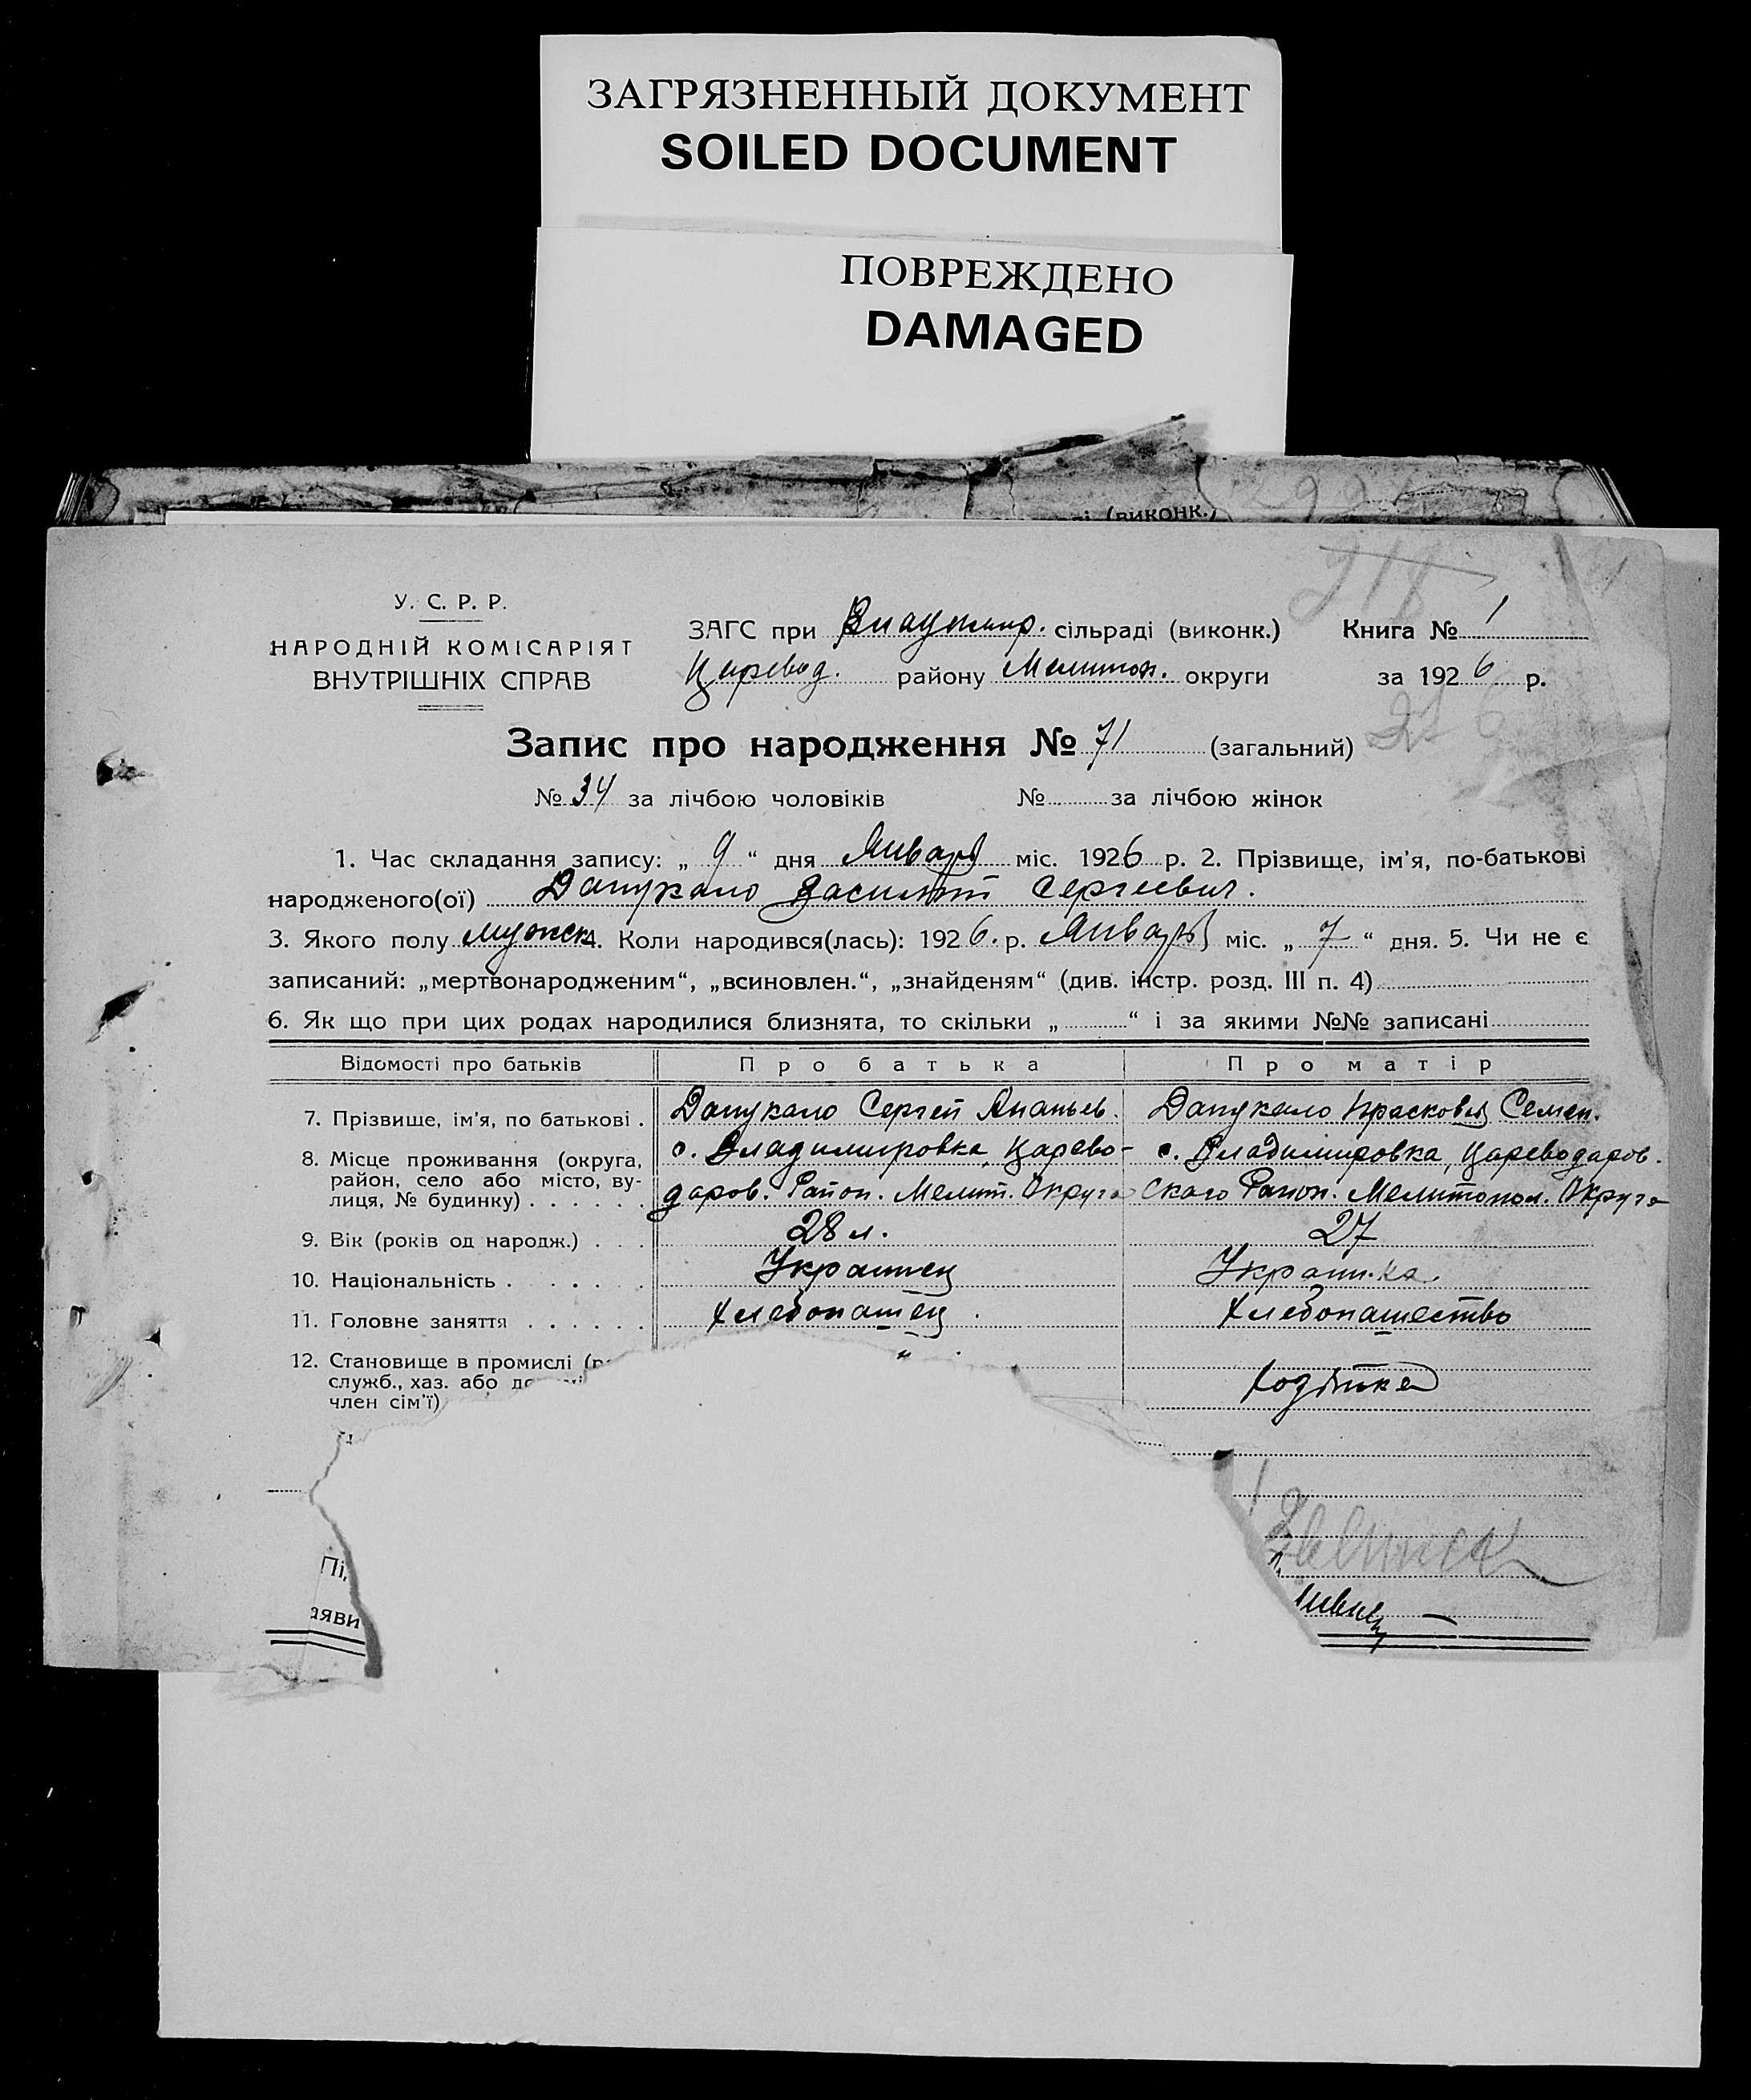 ЗАГРЯЗНЕННЫЙ ДОКУМЕНТ
SOILED DOCUMENT
ПОВРЕЖДЕНО
DAMAGED
(виконк.)
218
У. С. Р. Р.
НАРОДНІЙ КОМІСАРІЯТ
ВНУТРІШНІХ СПРАВ
ЗАГС при Владимир. сільраді (виконк.) Книга № 1
Царевод. району Мелитоп. округи за 1926 р.
Запис про народження № 71 (загальний)
№ 34 за лічбою чоловіків № за лічбою жінок
1. Час складання запису: „ 9 “ дня Январа міс. 1926 р. 2. Прізвище, ім'я, по-батькові
народженого(ої) Дацукало Василий Сергеевич.
3. Якого полу мужск. 4. Коли народився(лась): 1926. р. Январа міс. „ 7 “ дня. 5. Чи не є
записаний: „мертвонародженим“, „всиновлен.“, „знайденям“ (див. інстр. розд. III п. 4)
6. Як що при цих родах народилися близнята, то скільки „ “ і за якими №№ записані
Відомості про батьків Про батька Про матір
7. Прізвище, ім'я, по батькові . Дацукало Сергей Ананьев. Дацукало Прасковья Семен.
8. Місце проживання (округа, район, село або місто, вулиця, № будинку) . . . . . . с. Владимировка, Царево-
даров. Район. Мелит. Округа с. Владимировка, Цареводаров.
ского Район. Мелитопол. Округа
9. Вік (років од народж.) . . . 28 л. 27
10. Національність . . . . . . Украинец Украинка.
11. Головне заняття . . . . . . Хлебопашец Хлебопашество
12. Становище в промислі
служб., хаз. або
член сім'ї) " Ходяйка
Пі
аяви